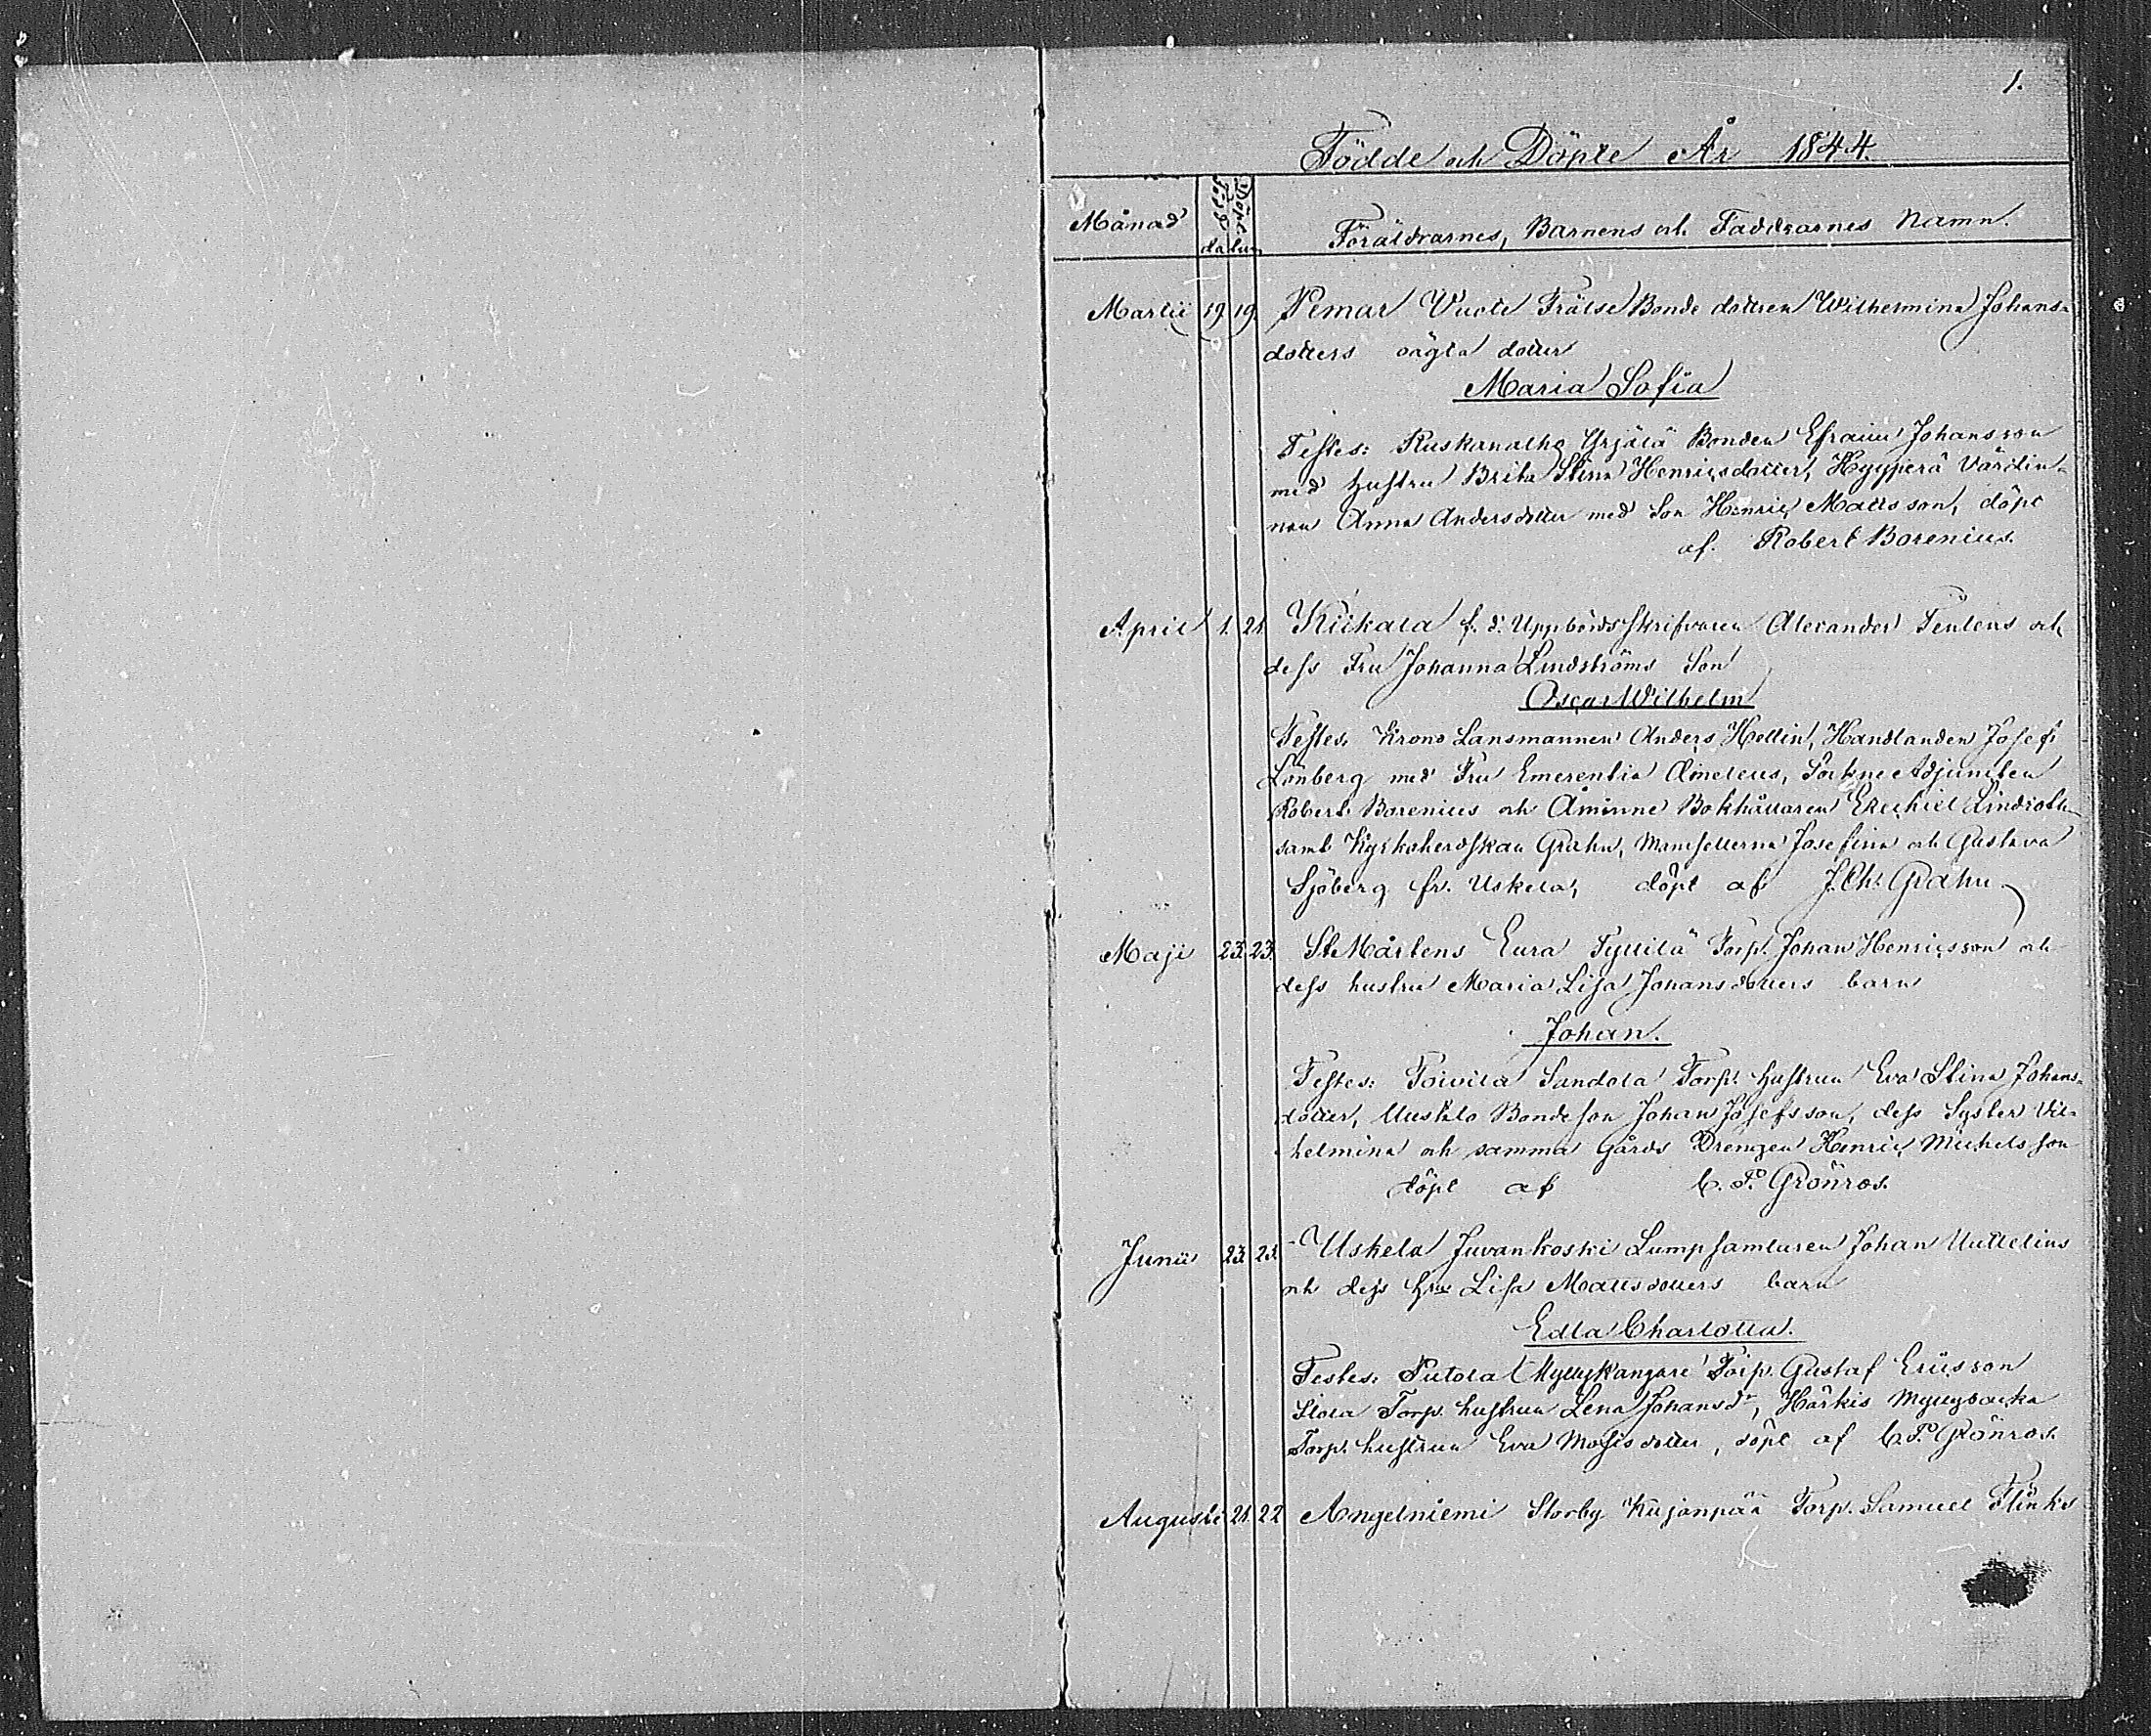 1.
Födde och Döpte År 1844.
Månad Född Döpt datum Föräldrarnes, Barnens och Faddrarnes Namn.
Martii 19 19. Pemar Vuote Frälse Bonde dottren Wilhelmina Johans-
dotters oägta dotter
Maria Sofia
Testes: Ruskanatko Yrjälä Bonden Efraim Johansson
med hustru Brita Stina Henricsdotter, Hyyperä Värdin-
nan Anna Andersdotter med Son Henric Mattsson, döpt
af. Robert Borenius.
April 1. 21. Kiikala f. d. Uppbördsskrifvaren Alexander Tenlens och
dess Fru Johanna Lindströms Son
Oscar Wilhelm
Testes. Krono Länsmannen Anders Hellin, Handlanden Josef
Lönberg med Fru Emerentia Aimeleus, Sockne Adjuncten
Robert Borenius och Åminne Bokhållaren Ezechiel Lindroth
samt Kyrkoherdskan Grahn, Mamsellerna Josefina och Gustava
Sjöberg fr. Uskela, döpt af J. Ch. Grahn
Maji 23. 23. St Mårtens Eura Tyllilä Torp. Johan Henricsson och
dess hustru Maria Lisa Johansdotters barn
Johan.
Testes: Toivila Sandola Torp. hustrun Eva Stina Johans-
dotter, Uuskto Bondeson Johan Josefsson, dess Syster Vil-
helmina och samma Gårds Drengen Henric Michelsson
döpt af C. F. Grönros.
Junii 23. 23. Uskela Juvankoski Lumpsamlaren Johan Uuttelius
och dess hru Lisa Mattsdotters barn
Edla Charlotta.
Testes. Putola Myllykangare Torp. Gustaf Ericsson
Siola Torp. hustrun Lena Johansdr, Härkis Myllybacka
Torp. hustrun Eva Mosisdotter, döpt af C. F. Grönros.
Augusti 21. 22 Angelniemi Storby Kujanpää Torp. Samuel Flinks